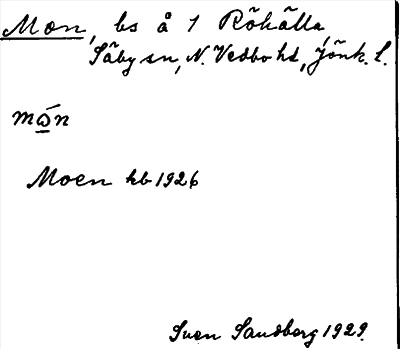 Mon, bs å 1 Rökälla,
Säby sn, N. Vedbo hd, Jönk. l.
mώn
Moen kb 1926
Sven Sandberg 1929.